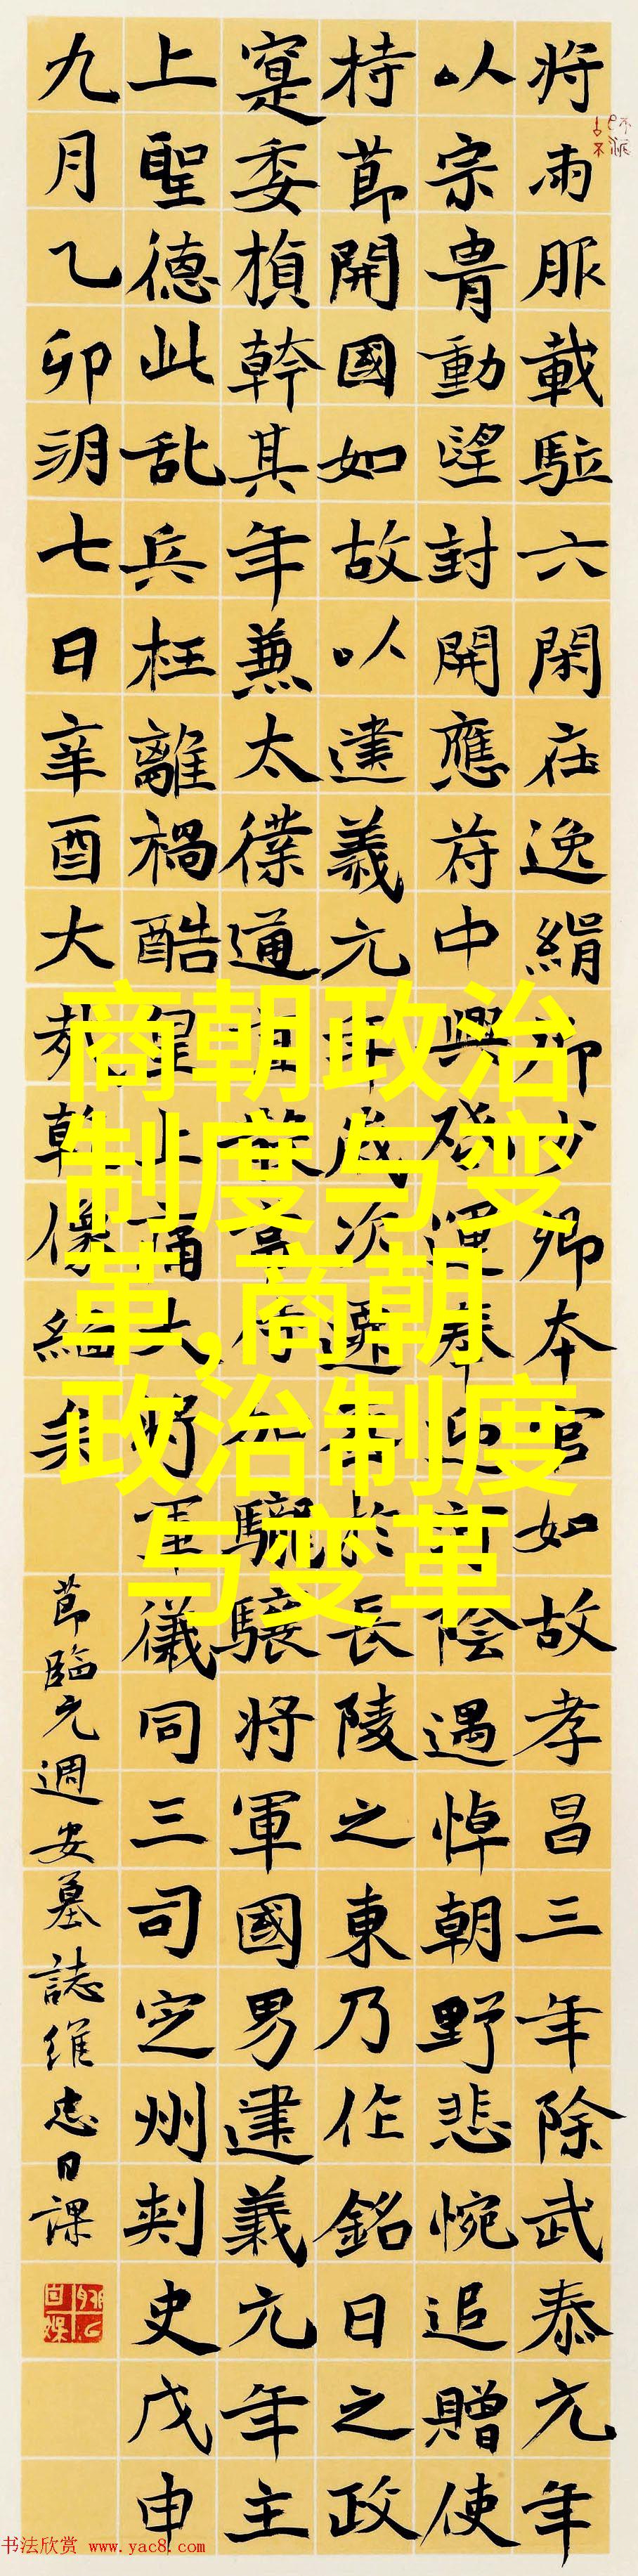 将雨服載駈六閑在逸絹少卿本官如故孝昌三年除武泰元年
以宗胄動望封開應苻中興運奉迎陰遇悼朝野悲惋追贈使
持節開國如故以建義元年歲次遷於長陵之東乃作銘日之政
寔委楨幹其年兼太僕通驍驤将軍國男建義元年主
上聖德此乱兵枉離禍酷上痛大将軍儀同三司定州刾史戊申
九月乙卯朔七日辛酉大乾像絪
節臨元週安墓誌維忠日課
商朝政治
制度与变
革,商朝
政治制度
与变革
书法欣赏 www.yac8.com